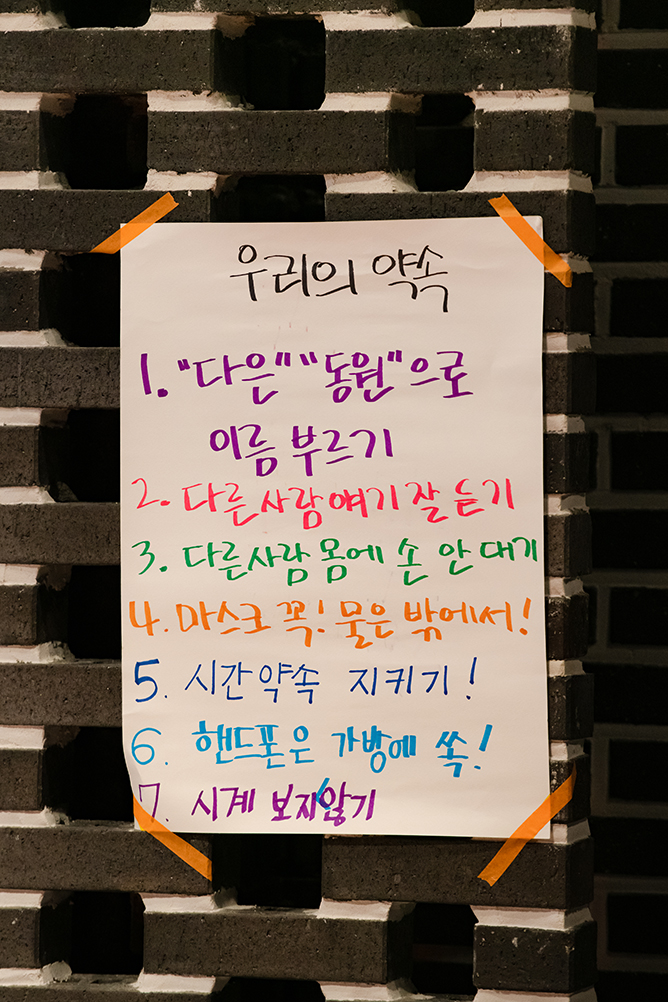 우리의 약속
1. "다은" "동원"으로
이름 부르기
2. 다른사람 얘기 잘 듣기
3. 다른사람 몸에 손 안 대기
4. 마스크 꼭! 물은 밖에서!
5. 시간약속 지키기!
6. 핸드폰은 가방에 쏙!
7. 시계 보지않기